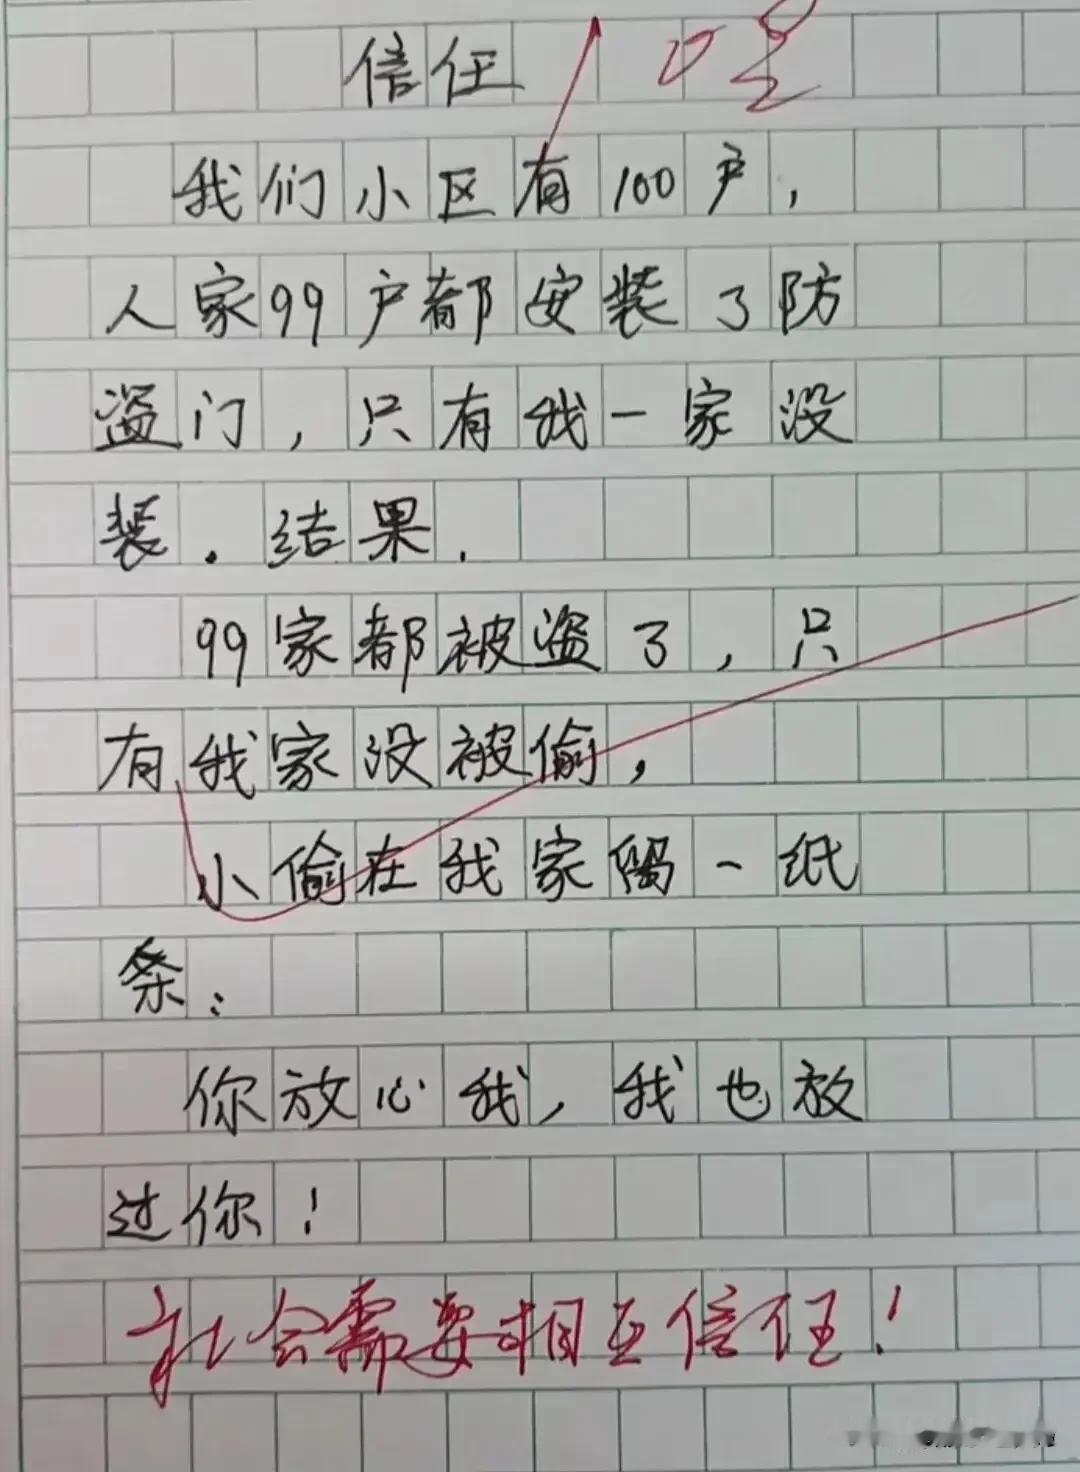 信任
我们小区有100户,
人家99户都安装了防
盗门,只有我一家没
装.结果.
99家都被盗了,只
有我家没被偷,
小偷在我家留一纸
条:
你放心我,我也放
过你!
社会需要相互信任!